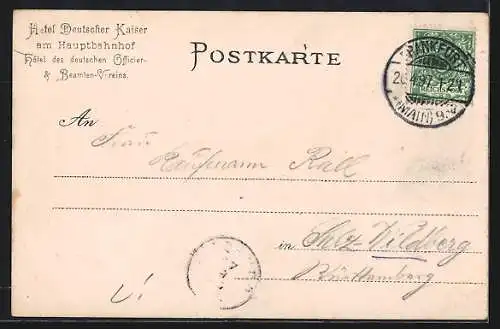 Hotel Deutscher Kaiser
am Hauptbahnhof
Hôtel des deutschen Officier-
& Beamten-Vereins.
POSTKARTE
FRANKFURT
(MAIN) 9
REICHS
An
Frau
Kaufmann Rall
in Sulz-Wildberg
Württemberg